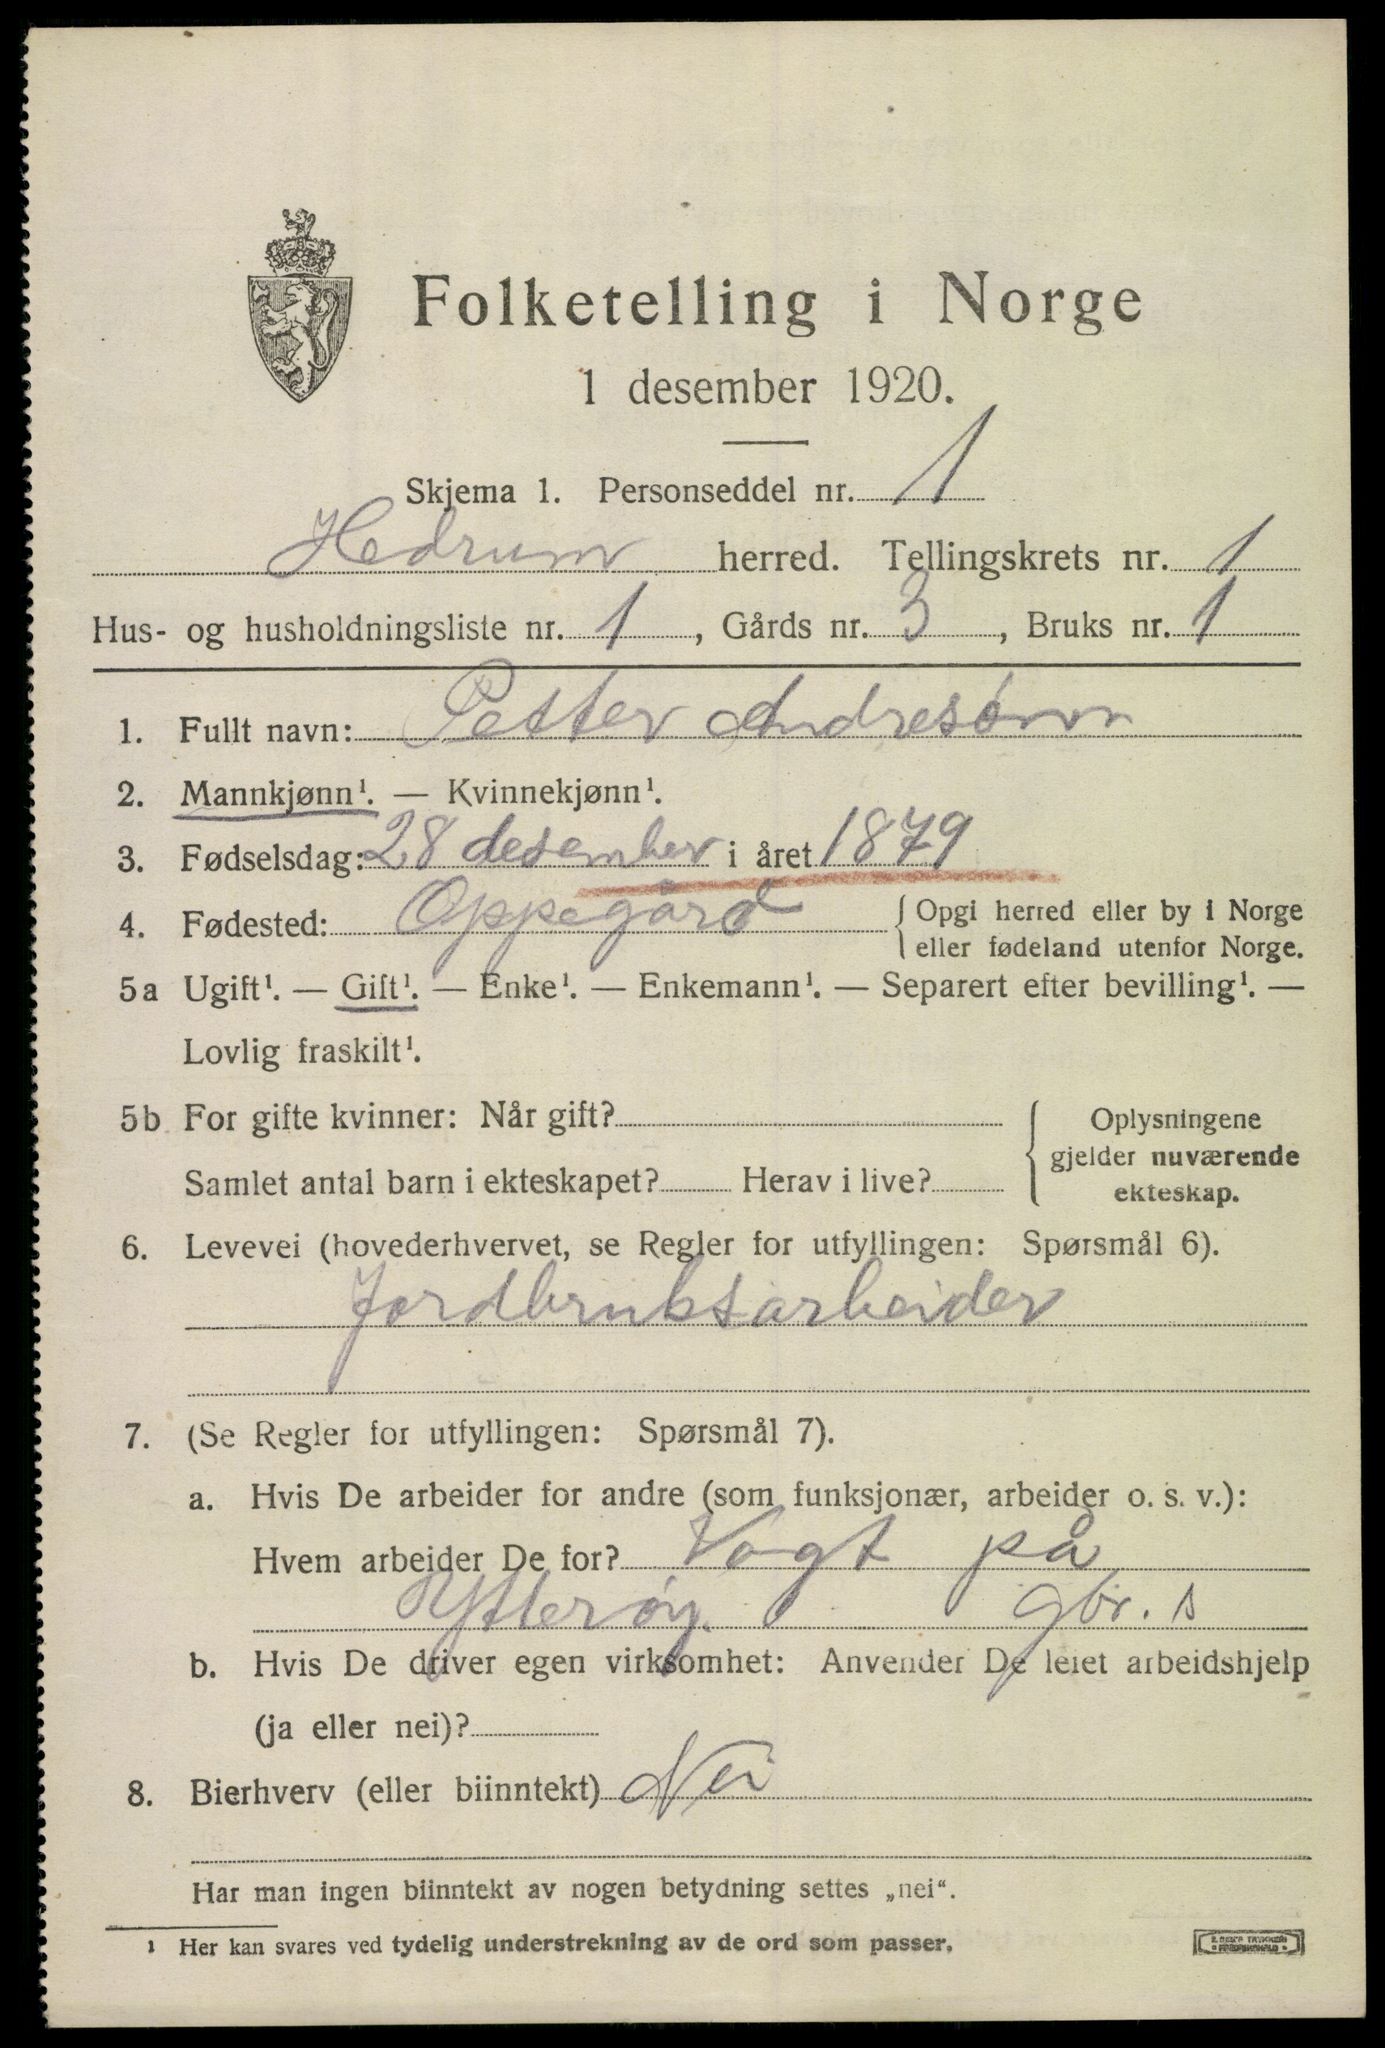 Folketelling i Norge
1 desember 1920.
Skjema 1. Personseddel nr. 1
Hedrum herred. Tellingskrets nr. 1
Hus- og husholdningsliste nr. 1, Gårds nr. 3, Bruks nr. 1
1. Fullt navn: Petter Andresønn
2. Mannkjønn¹. — Kvinnekjønn¹.
3. Fødselsdag: 28 desember i året 1879
4. Fødested: Oppegård { Opgi herred eller by i Norge
eller fødeland utenfor Norge.
5a Ugift¹. — Gift¹. — Enke¹. — Enkemann¹. — Separert efter bevilling¹. —
Lovlig fraskilt¹.
5b For gifte kvinner: Når gift?
Samlet antal barn i ekteskapet? Herav i live?
{ Oplysningene
gjelder nuværende
ekteskap.
6. Levevei (hovederhvervet, se Regler for utfyllingen: Spørsmål 6).
Jordbruksarbeider
7. (Se Regler for utfyllingen: Spørsmål 7).
a. Hvis De arbeider for andre (som funksjonær, arbeider o. s. v.):
Hvem arbeider De for? Vogt på
Ytterøy. gbr. s
b. Hvis De driver egen virksomhet: Anvender De leiet arbeidshjelp
(ja eller nei)?
8. Bierhverv (eller biinntekt) Nei
Har man ingen biinntekt av nogen betydning settes „nei“.
¹ Her kan svares ved tydelig understrekning av de ord som passer.